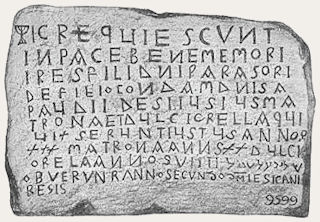 IC REQUIESCUNT
IN PACE BENEMEMORI
TRES FILI DNI PARAGORI
DE FILIO CONDAM DNI SA
PAUDI ID ES IUSTUS MA
TRONA ET DULCIORELLA QUI
VIXSERUNT IUSTUS ANNOS
XXX MATRONA ANNS XX DULCI
ORELA ANNOS VIIII שלום על שראל
OBUERUN ANNO SECUNDO DMI EGICANI
REGIS
9599